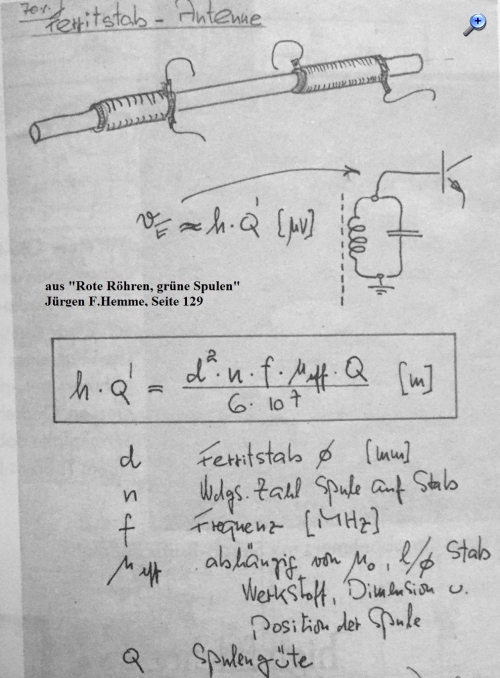 70r.
Ferritstab - Antenne
v_E ≈ h·Q' [µV]
aus "Rote Röhren, grüne Spulen"
Jürgen F.Hemme, Seite 129
h·Q' = d²·n·f·µeff·Q / 6·10⁷ [m]
d Ferritstab ϕ [mm]
n Wdgs.Zahl Spule auf Stab
f Frequenz [MHz]
µeff abhängig von µ₀, l/ϕ Stab
Werkstoff, Dimension u.
Position der Spule
Q Spulengüte